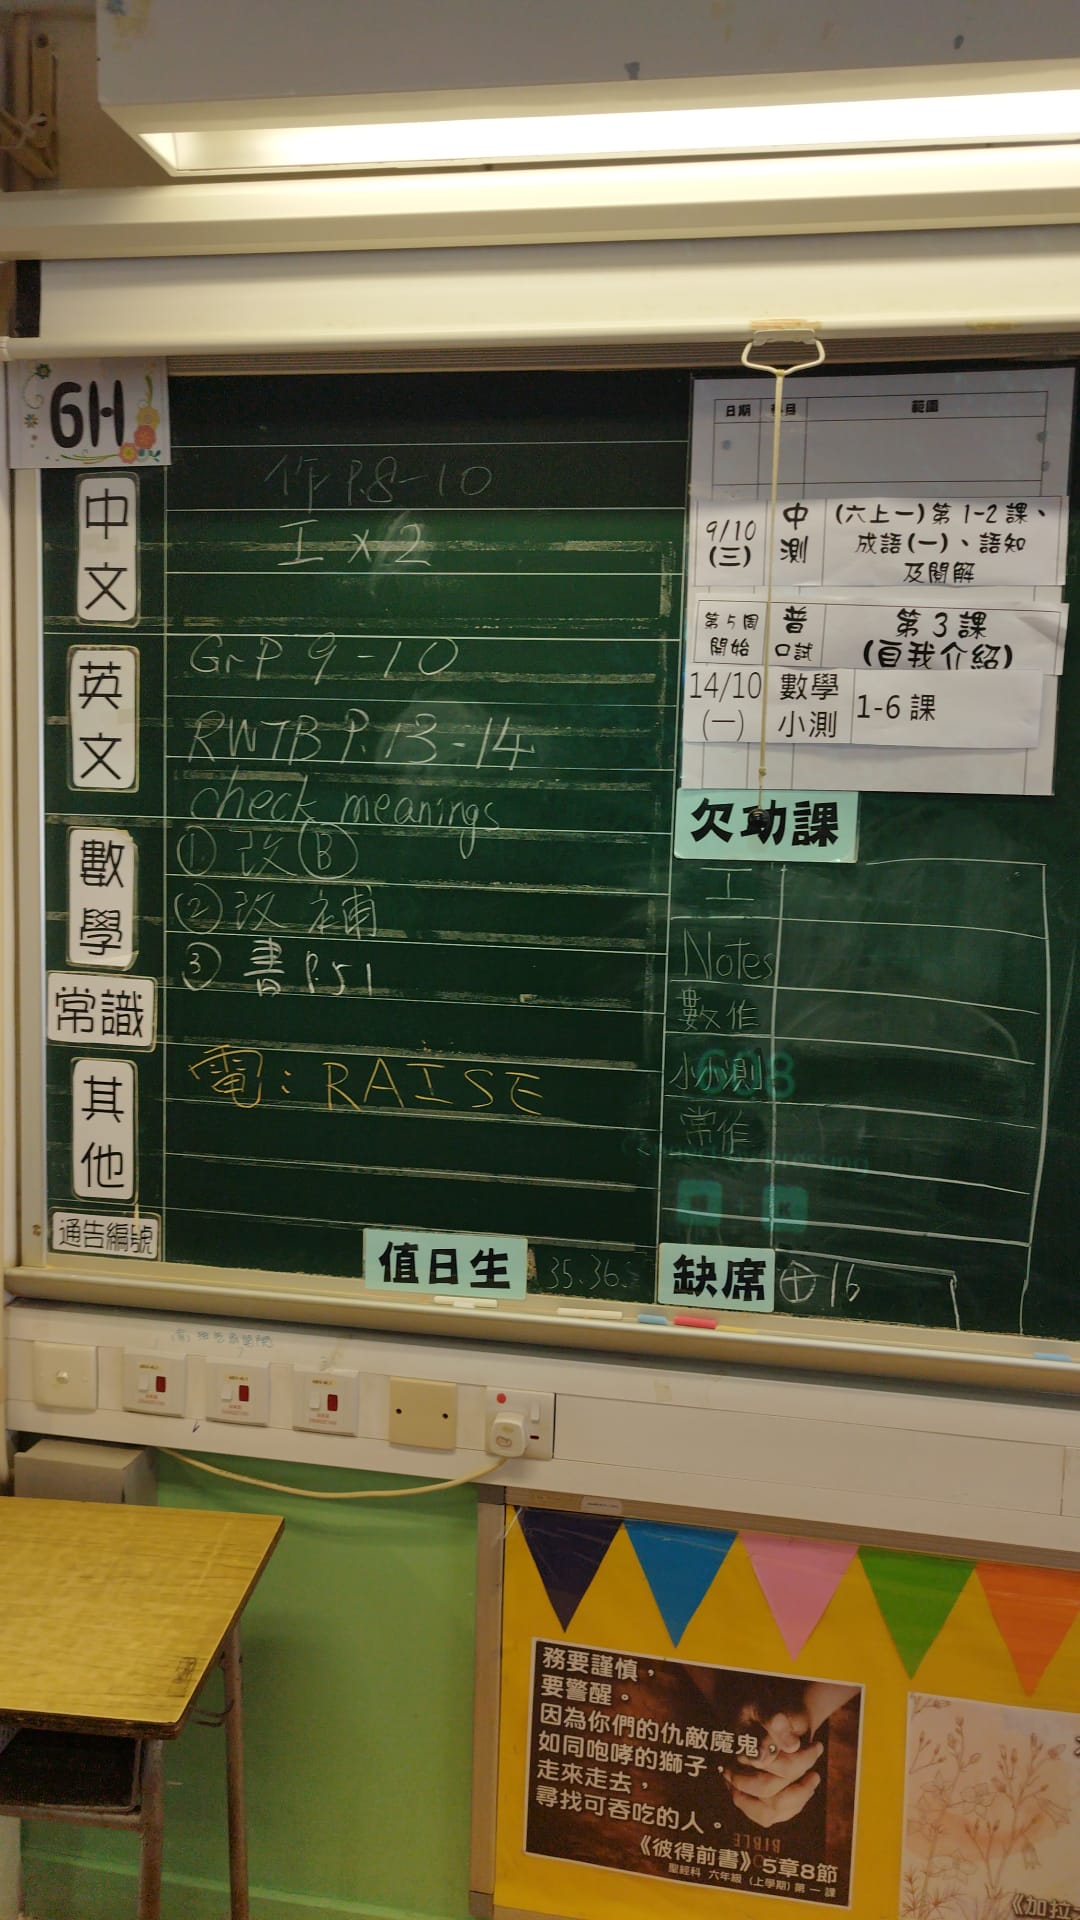 6H
中文
作 P.8-10
工 x 2
英文
Gr P 9-10
RWTB P. 13-14
check meanings
數學
① 改 Ⓑ
② 改 補
③ 書 P.51
常識
其他
電: RAISE
通告編號
值日生 35.36
日期 科目 範圍
9/10 (三) 中測 (六上一)第 1-2 課、
成語(一)、語知
及閱解
第5周開始 普口試 第 3 課
(自我介紹)
14/10 (一) 數學小測 1-6 課
欠功課
工
Notes
數作
小測
常作
缺席 ⊕ 16
務要謹慎，
要警醒。
因為你們的仇敵魔鬼，
如同咆哮的獅子，
走來走去，
尋找可吞吃的人。
BIBLE
《彼得前書》5章8節
聖經科 六年級 (上學期) 第一課
《加拉